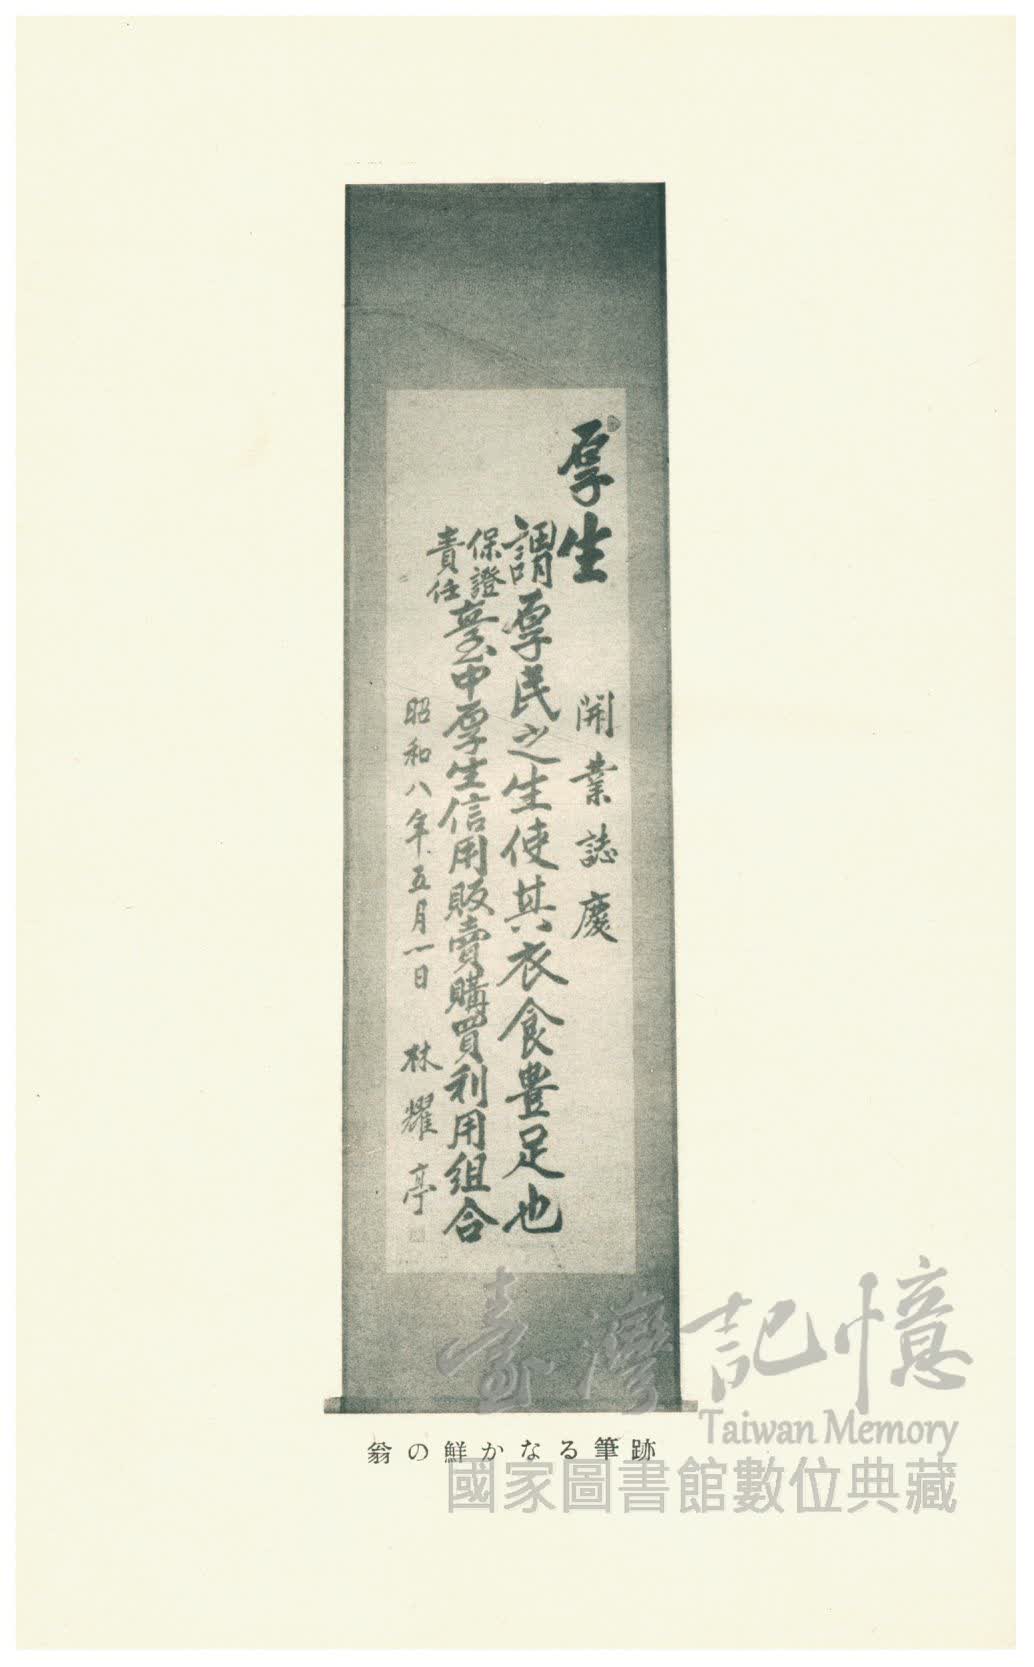 厚生
開業誌慶
謂厚民之生使其衣食豊足也
保證
責任
臺中厚生信用販賣購買利用組合
昭和八年五月一日 林耀亭
翁の鮮かなる筆跡
臺灣記憶
Taiwan Memory
國家圖書館數位典藏